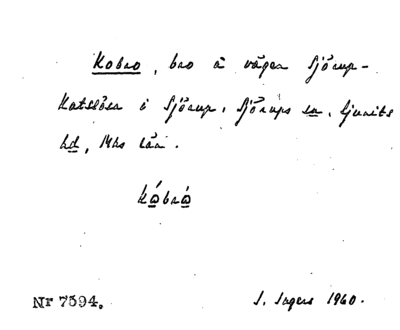 Kobro, bro å vägen Sjörup-
Katslösa i Sjörup, Sjörups sn, Ljunits
hd, Mhs län.
kóbrò
Nr 7594. I. Ingers 1960.